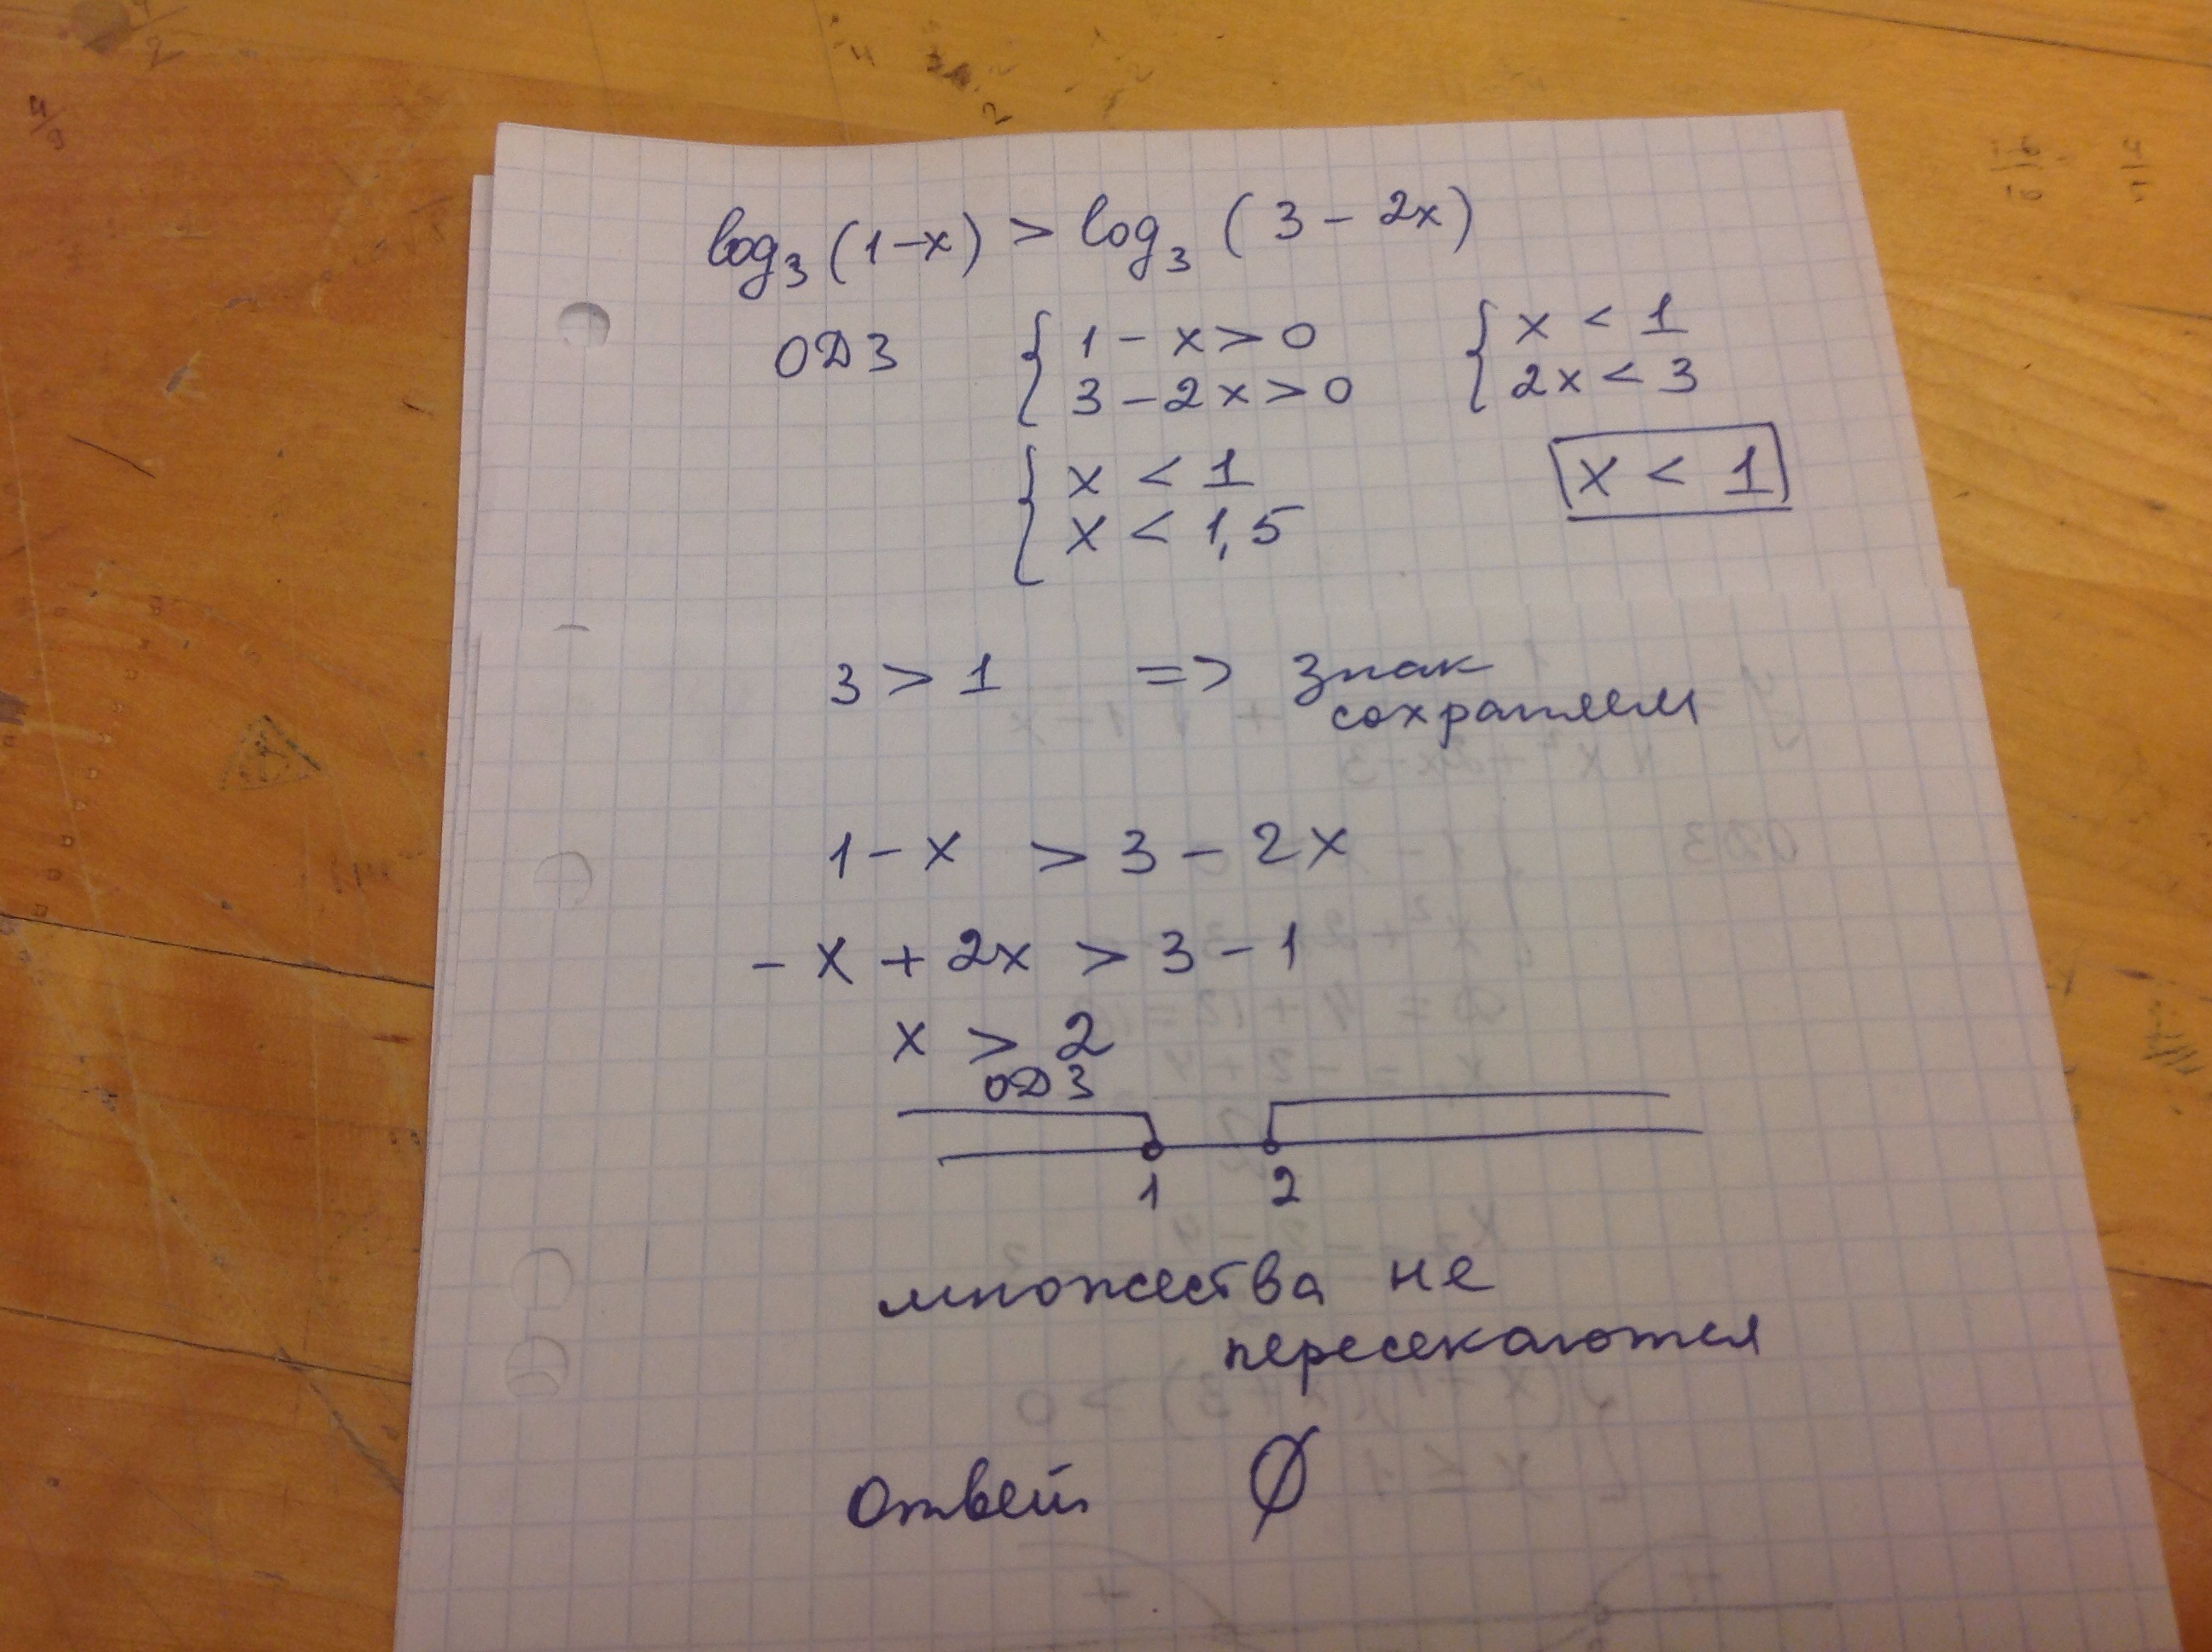 log₃(1-x) > log₃ (3 - 2x)
ОДЗ { 1 - x > 0 { x < 1
3 - 2x > 0 2x < 3
{ x < 1 x < 1
x < 1,5
3 > 1 => знак
сохраняем
1 - x > 3 - 2x
- x + 2x > 3 - 1
x > 2
ОДЗ
1 2
множества не
пересекаются
Ответ Ø